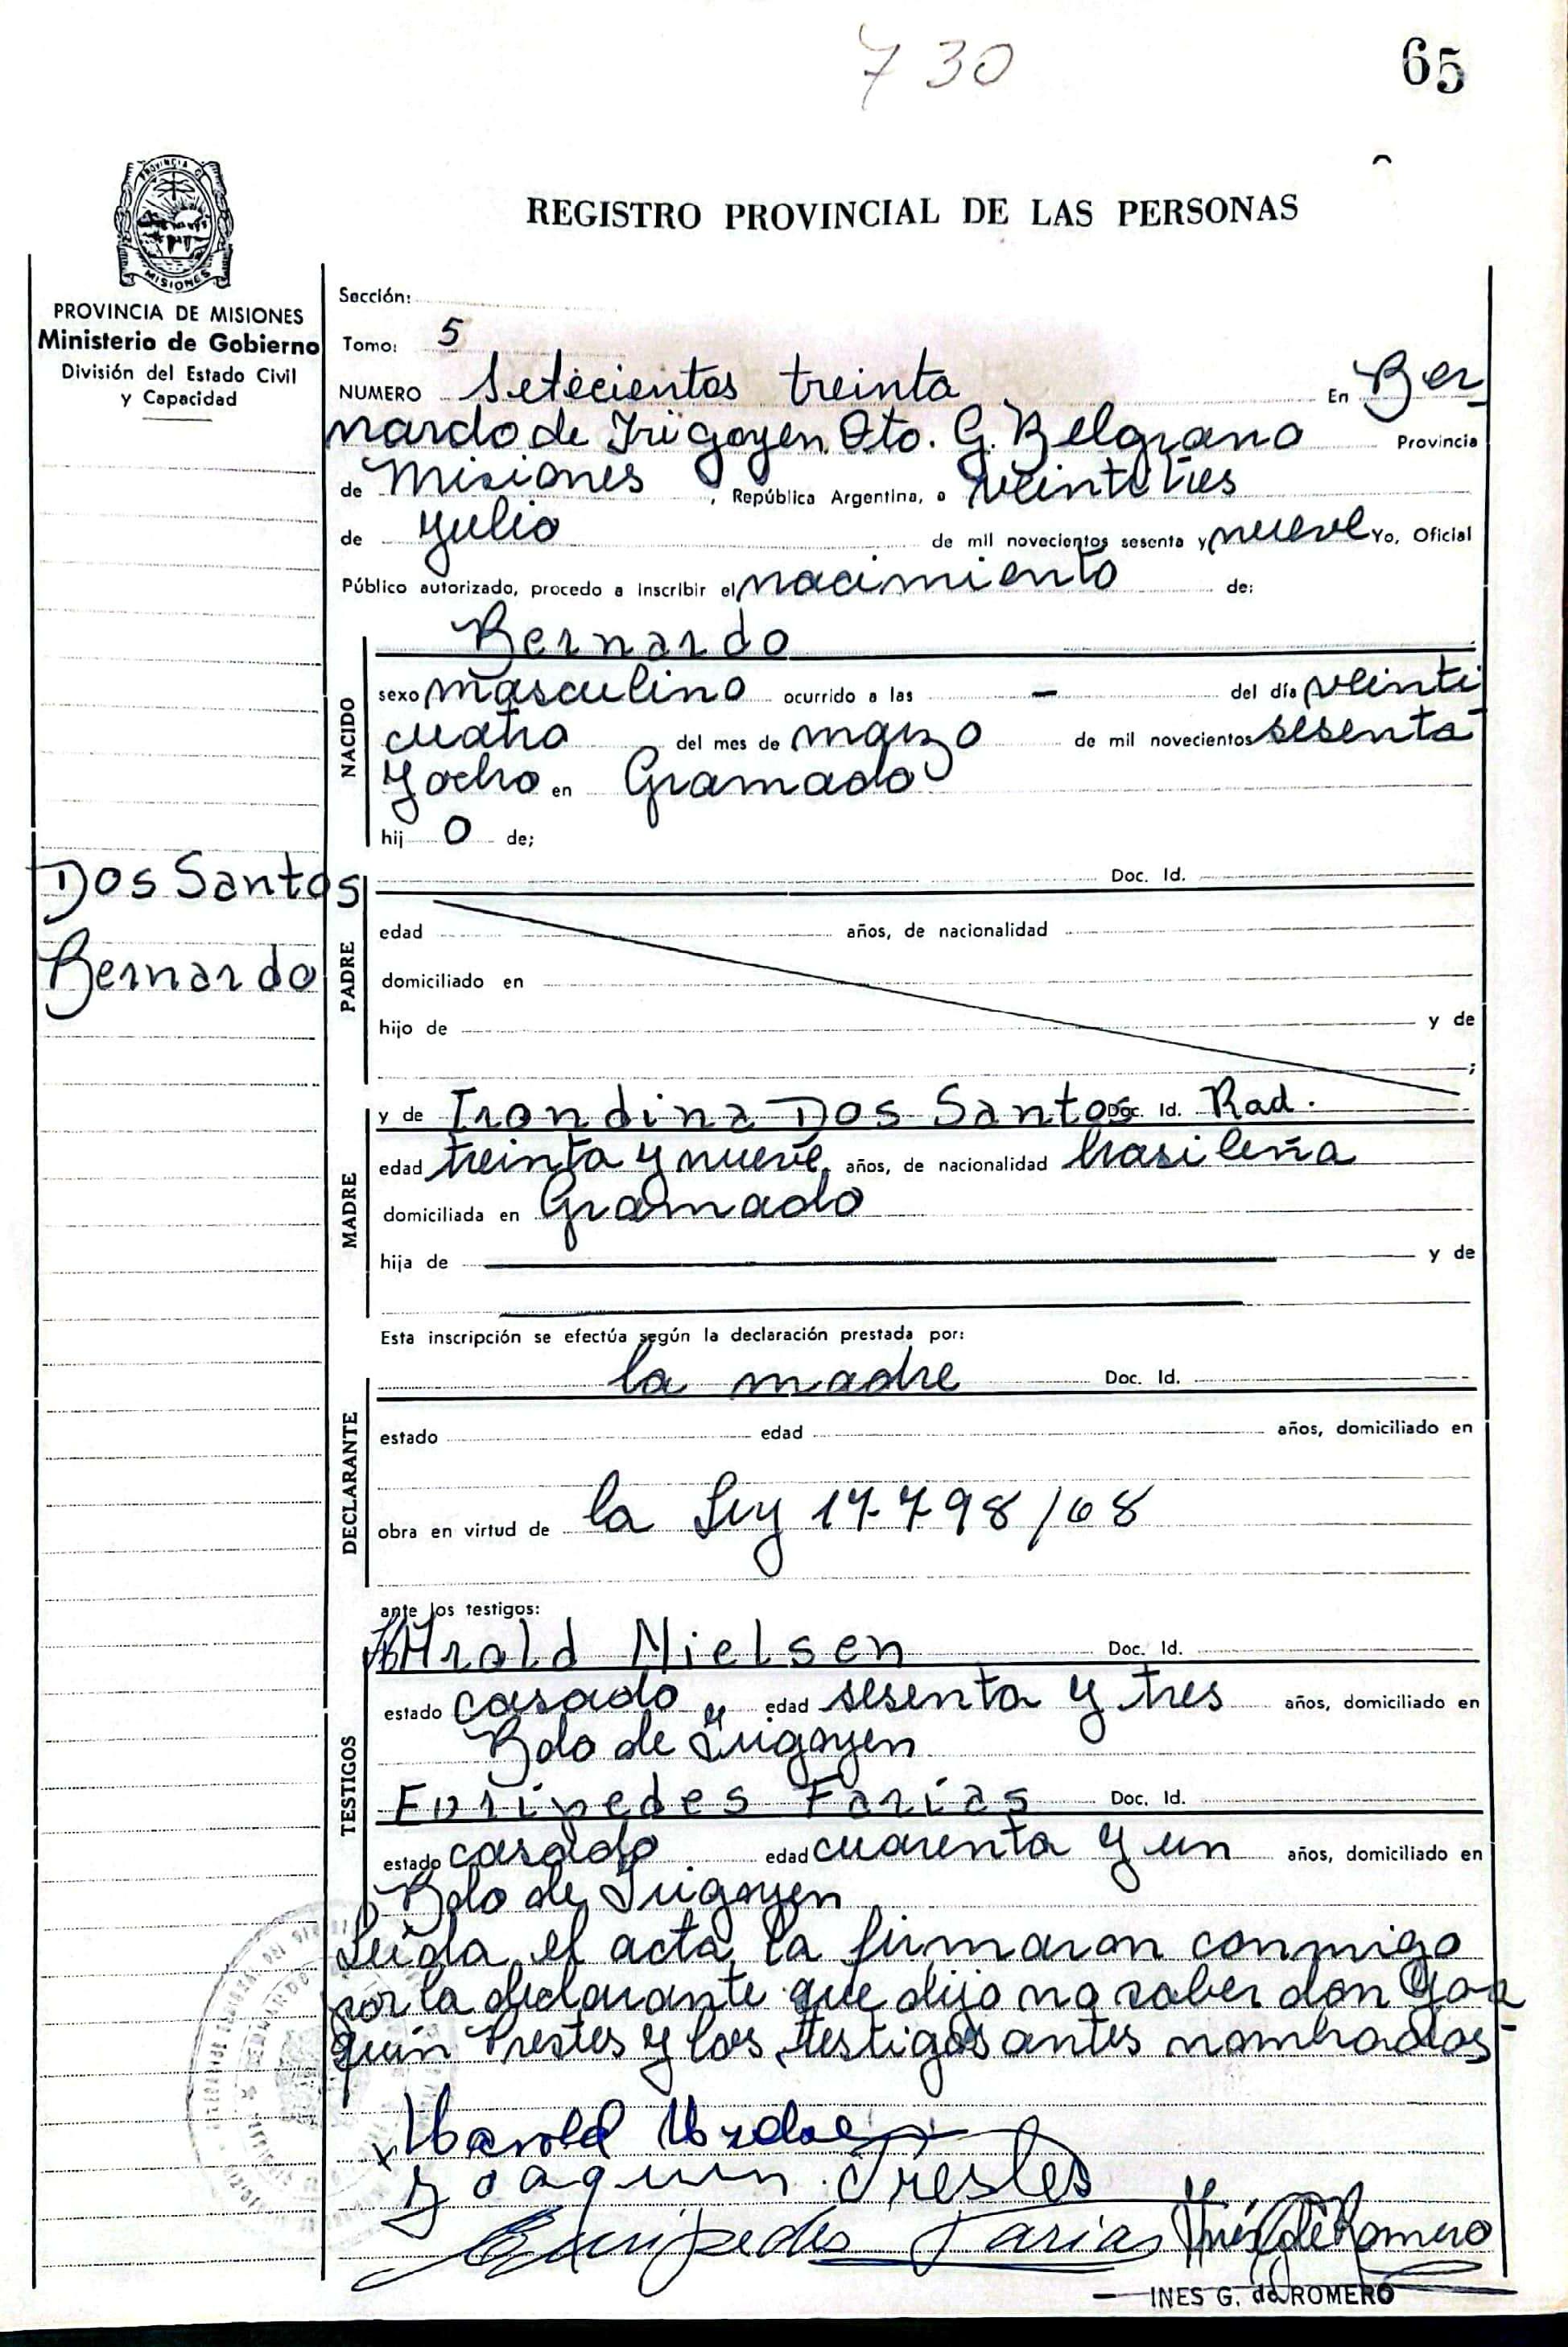 730
65
REGISTRO PROVINCIAL DE LAS PERSONAS
PROVINCIA DE
MISIONES
PROVINCIA DE MISIONES
Ministerio de Gobierno
División del Estado Civil
y Capacidad
Sección:
Tomo: 5
NUMERO Setecientos treinta En Ber
nardo de Irigoyen Dto. G. Belgrano Provincia
de Misiones, República Argentina, a veintitres
de Julio de mil novecientos sesenta y nueve Yo, Oficial
Público autorizado, procedo a inscribir el nacimiento de:
Bernardo
NACIDO
sexo masculino ocurrido a las — del día veinti
cuatro del mes de marzo de mil novecientos sesenta
y ocho en Gramado
hij o de;
Dos Santos
Bernardo
PADRE
Doc. Id.
edad años, de nacionalidad
domiciliado en
hijo de y de
;
MADRE
y de Irondina Dos Santos Doc. Id. Rad.
edad treinta y nueve años, de nacionalidad brasileña
domiciliada en Gramado
hija de y de
Esta inscripción se efectúa según la declaración prestada por:
DECLARANTE
la madre Doc. Id.
estado edad años, domiciliado en
obra en virtud de la Ley 17.798/68
ante los testigos:
TESTIGOS
Harold Nielsen Doc. Id.
estado casado edad sesenta y tres años, domiciliado en
Bdo de Irigoyen
Eurípedes Farías Doc. Id.
estado casado edad cuarenta y un años, domiciliado en
Bdo de Irigoyen
Leída el acta, la firmaron conmigo
por la declarante que dijo no saber don Joa
quín Prestes y los testigos antes nombrados
Harold
Joaquin Prestes
Euripedes Farias Inés G de Romero
INES G. de ROMERO